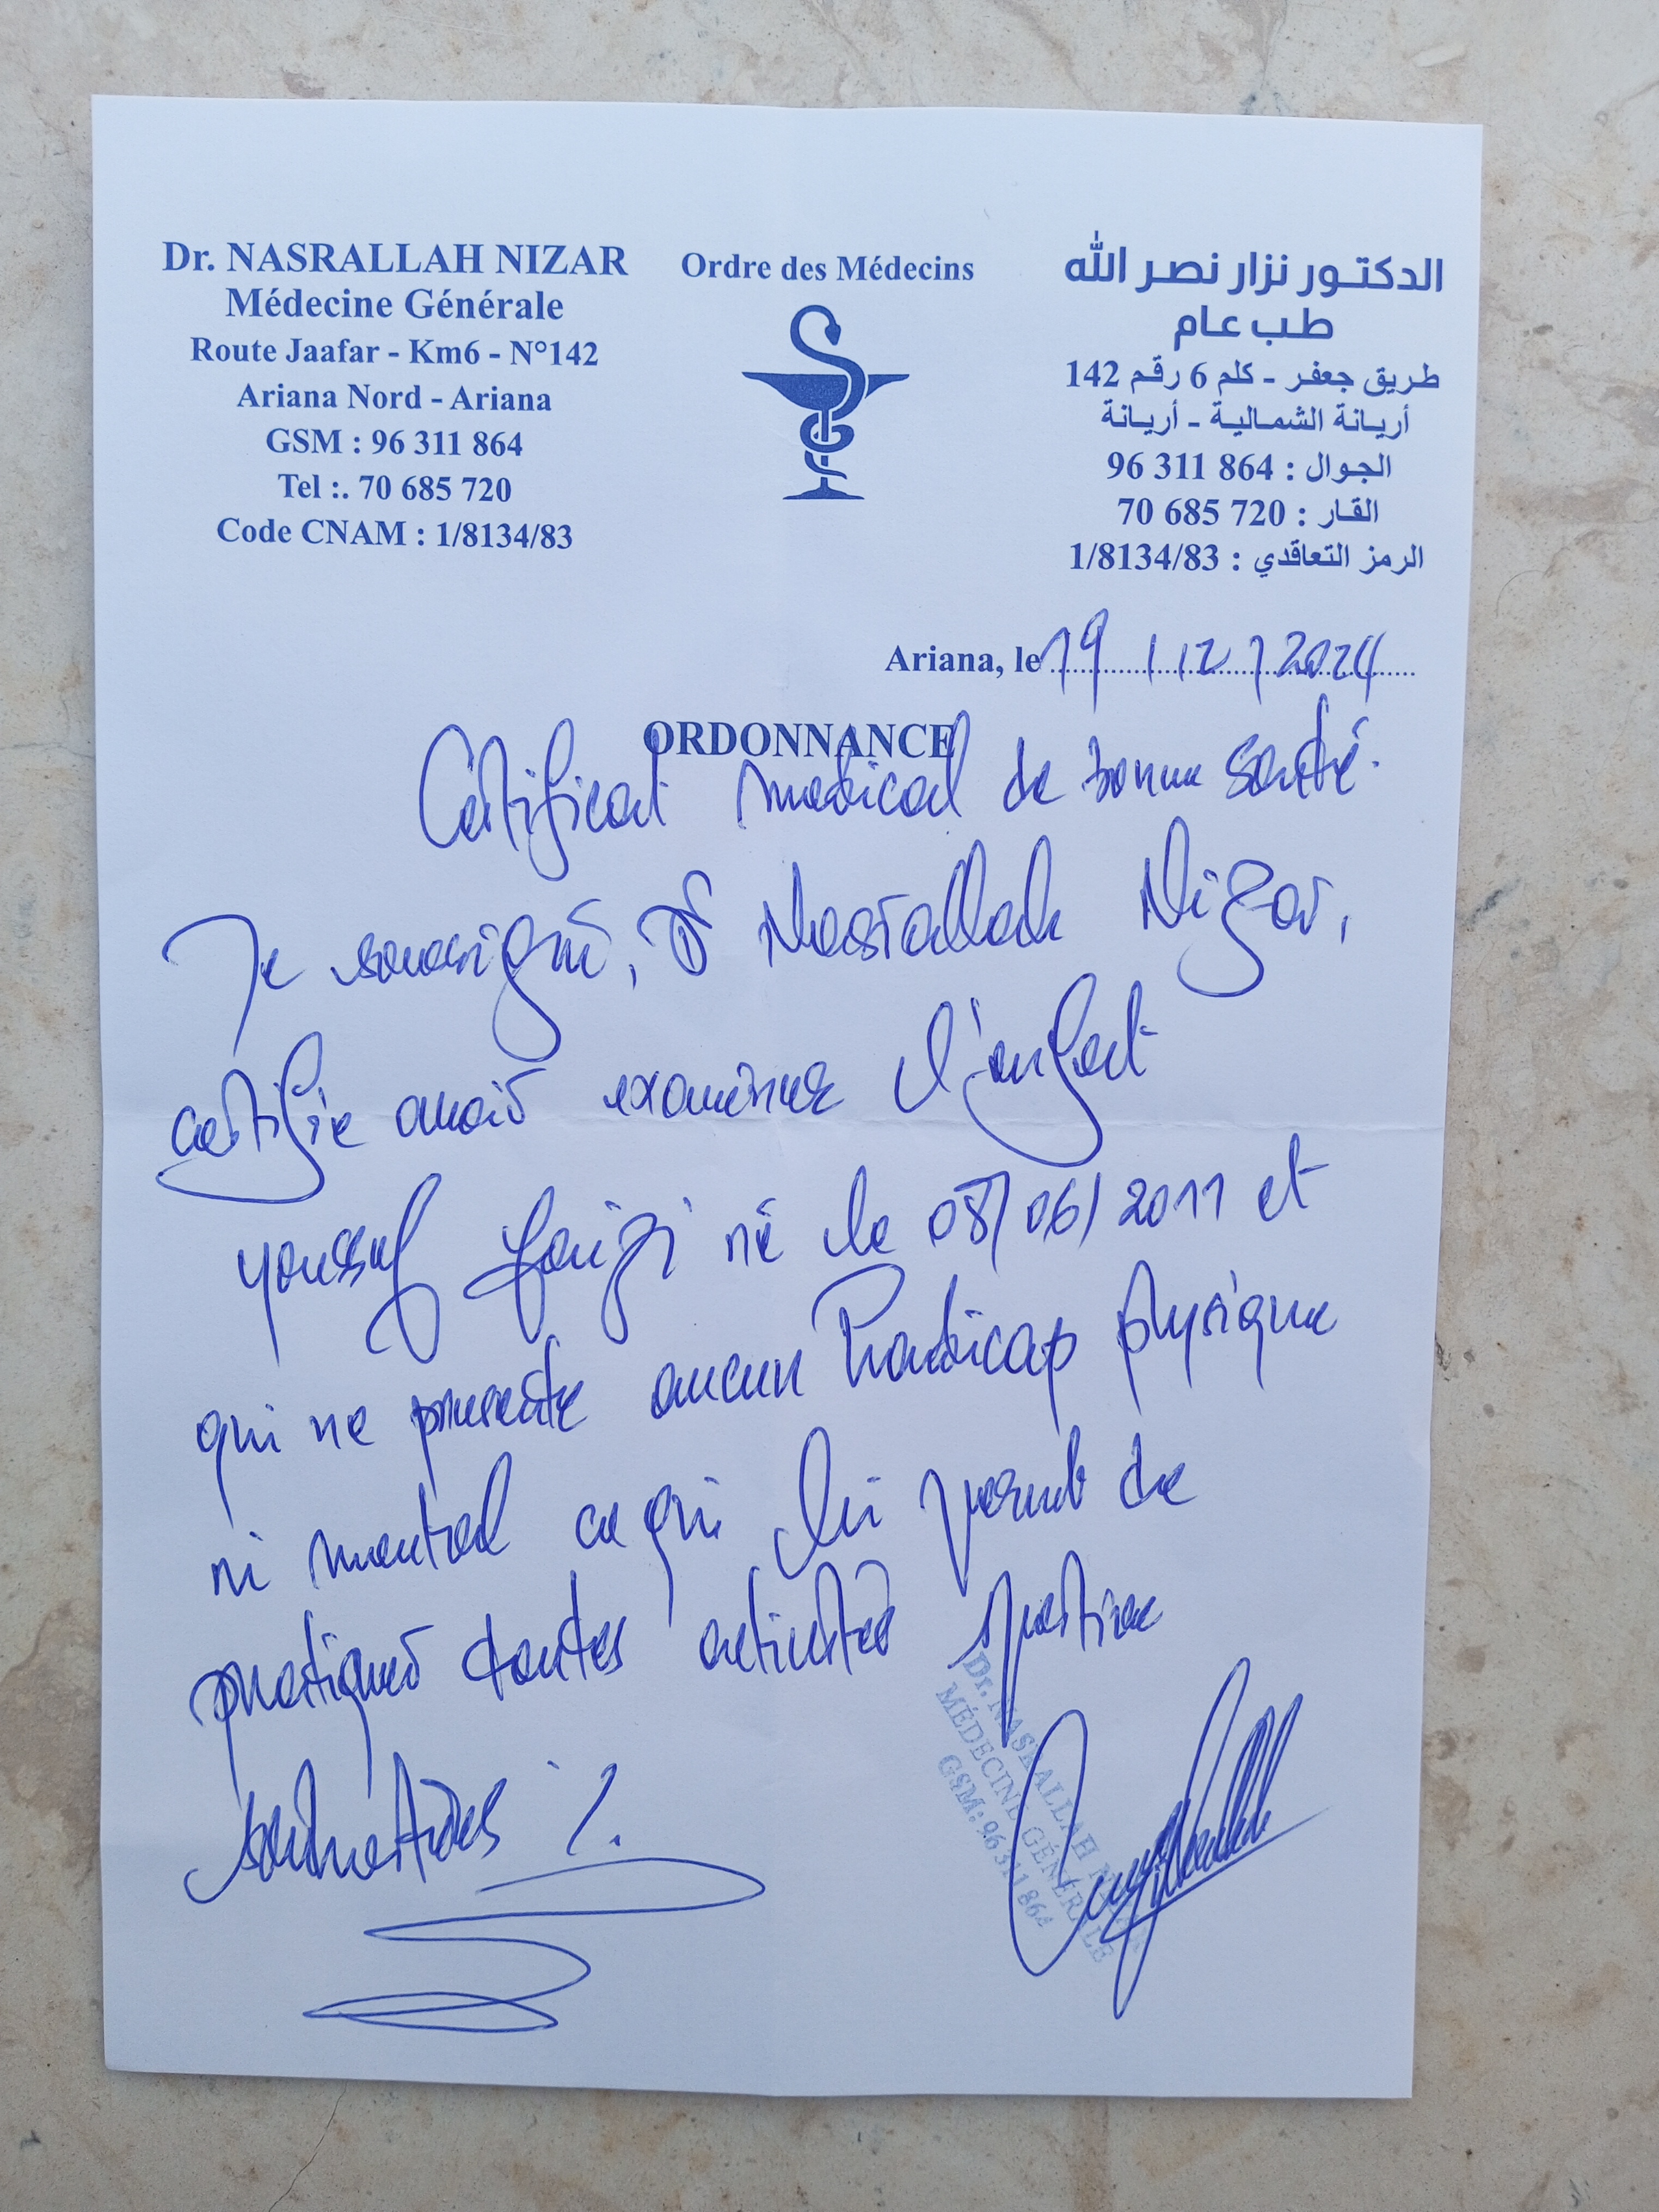 Dr. NASRALLAH NIZAR
Médecine Générale
Route Jaafar - Km6 - N°142
Ariana Nord - Ariana
GSM : 96 311 864
Tel :. 70 685 720
Code CNAM : 1/8134/83
Ordre des Médecins
الدكتور نزار نصر الله
طب عام
طريق جعفر - كلم 6 رقم 142
أريانة الشمالية - أريانة
الجوال : 96 311 864
القار : 70 685 720
الرمز التعاقدي : 1/8134/83
Ariana, le 19/12/2024
ORDONNANCE
Certificat medical de bonne santé.
Je soussigné, Dr Nasrallah Nizar,
certifie avoir examiner l'enfant
Youssef né le 08/06/2011 et
qui ne presente aucun handicap physique
ni mental ce qui lui permet de
pratiquer toutes activités sportive
Dr. NASRALLAH NIZAR
MÉDECINE GÉNÉRALE
GSM: 96 311 864